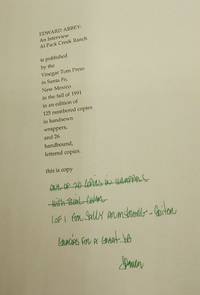 EDWARD ABBEY:
An Interview
At Pack Creek Ranch
is published
by the
Vinegar Tom Press
in Santa Fe,
New Mexico
in the fall of 1991
in an edition of
125 numbered copies
in handsewn
wrappers,
and 26
handbound,
lettered copies.
this is copy
ONE OF 20 COPIES IN WRAPPERS
WITH
1 OF 1 FOR SALLY ARMSTRONG -
FOR A GREAT